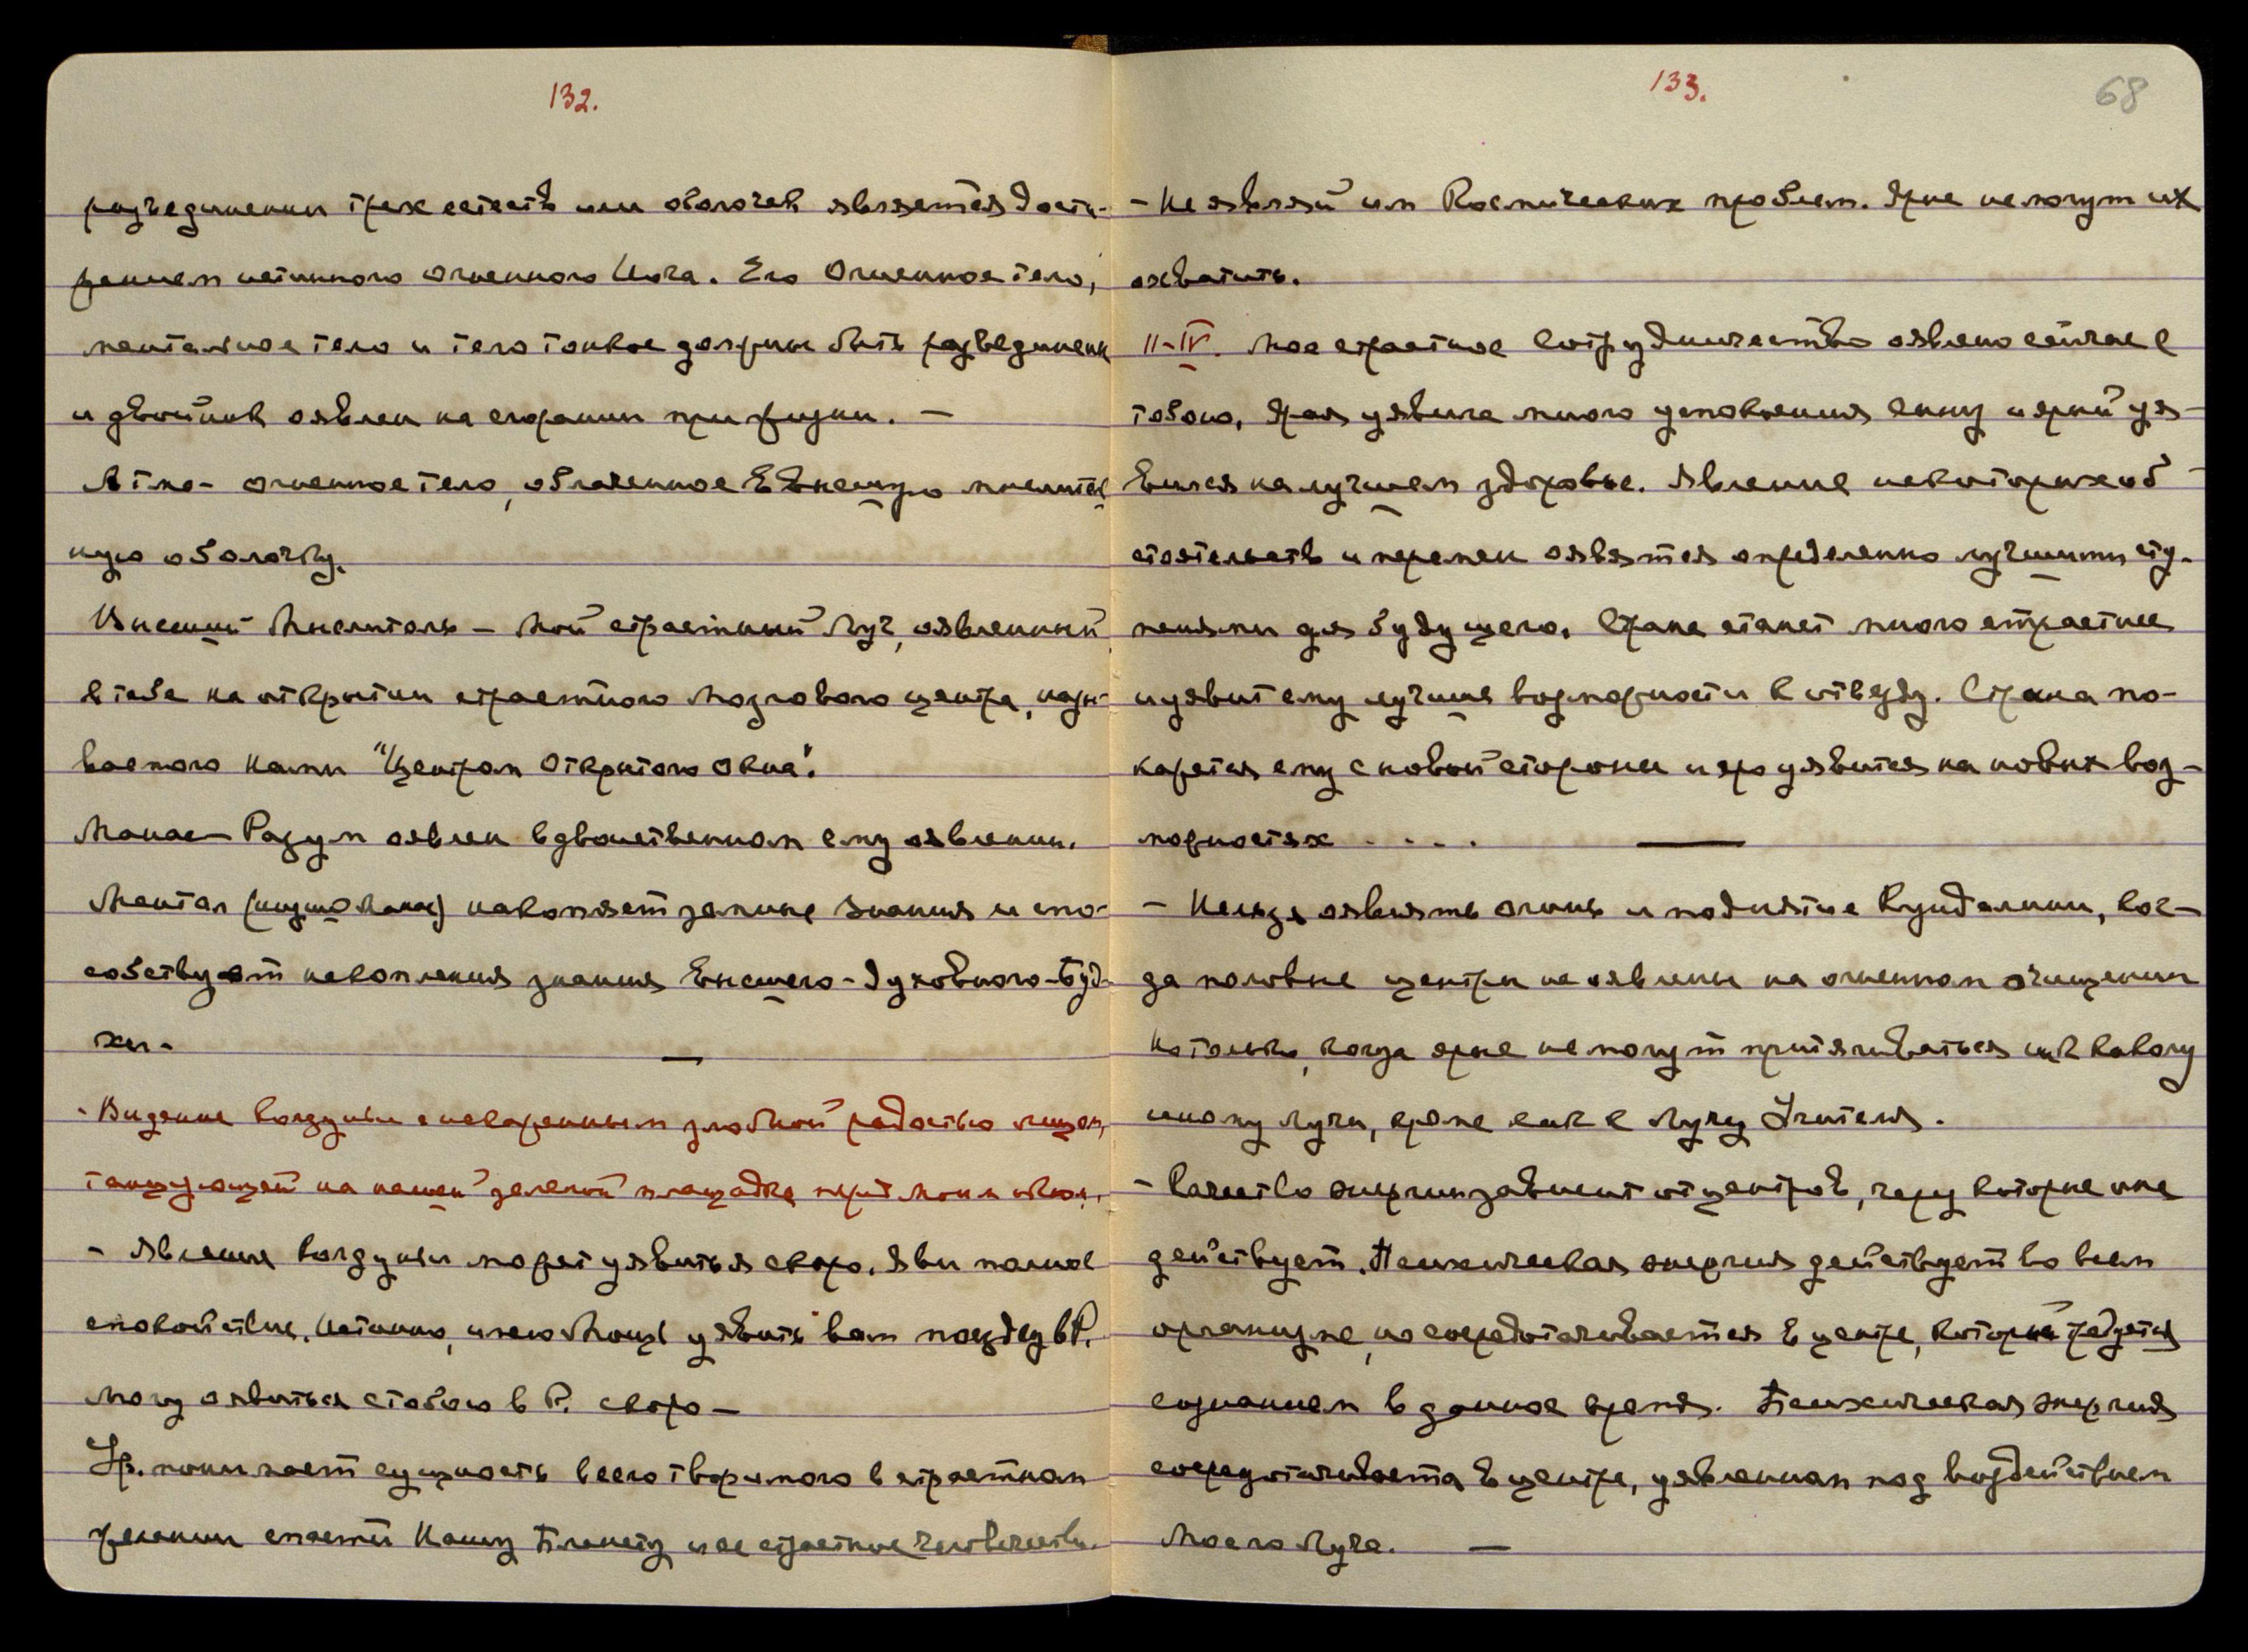 132.
разъединении трех естеств или оболочек является дости-
жением истинного огненного Йога. Его Огненное тело,
ментальное тело и тело тонкое должны быть разъединены
и двойник оявлен на сгорании при жизни. —
Атма - огненное тело, облаченное в Высшую мыслитель
ную оболочку.
Высший Мыслитель - Мой страстный Луч, оявленный
в тебе на открытии страстного мозгового центра, назы-
ваемого Нами "Центром Открытого Окна".
Манас - Разум оявлен в двойственном ему оявлении.
Ментал (низший Манас) накопляет земные знания и спо-
собствует накоплению знания Высшего - Духовного - Буд-
хи - —
- Видение колдуньи с искаженным злобной радостью лицом,
танцующей на нашей зеленой площадке перед моим окном.
- Явление колдуньи может уявиться скоро. Яви полное
спокойствие. Истинно, имею Мощь уявить вам поездку в Р.
Могу оявиться с тобою в Р. скоро —
Ур. понимает сущность всего творимого в страстном
желании спасти Нашу Планету и ее страстное человечество.
133.
68
- Не являй им Космических проблем. Ярые не могут их
охватить.
11-IV. Мое страстное сотрудничество оявлено сейчас с
тобою. Ярая уявила много успокоения сыну и ярый уя-
вился на лучшем здоровье. Явление некоторых об-
стоятельств и перемен оявятся определенно лучшими сту-
пенями для будущего. Страна станет много страстнее
и уявит ему лучшие возможности к отъезду. Страна по-
кажется ему с новой стороны и яро уявится на новых воз-
можностях . . . . —
- Нельзя оявлять огонь и поднятие Кундалини, ког-
да половые центры не оявлены на огненном очищении
Но только, когда ярые не могут притягиваться ни к какому
иному лучу, кроме как к Лучу Учителя.
- Качество энергии зависит от центров, через которые она
действует. Психическая энергия действует во всем
организме, но сосредотачивается в центре, который
сознанием в данное время. Психическая энергия
сосредотачивается в центре, уявленном под воздействием
Моего Луча. —